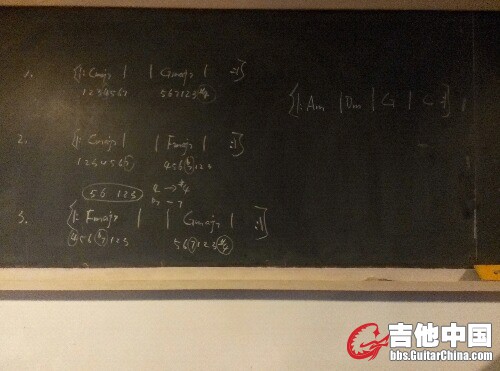 1. {|: Cmaj7 | | Gmaj7 | :|}
1 2 3 4 5 6 7 5 6 7 1 2 3 #4
{|: Am | Dm | G | C :|}
2. {|: Cmaj7 | | Fmaj7 | :|}
1 2 3 4 5 6 7 4 5 6 b7 1 2 3
5 6 1 2 3 → #4
3. {|: Fmaj7 | | Gmaj7 | :|}
4 5 6 b7 1 2 3 5 6 7 1 2 3 #4
吉他中国
bbs.GuitarChina.com